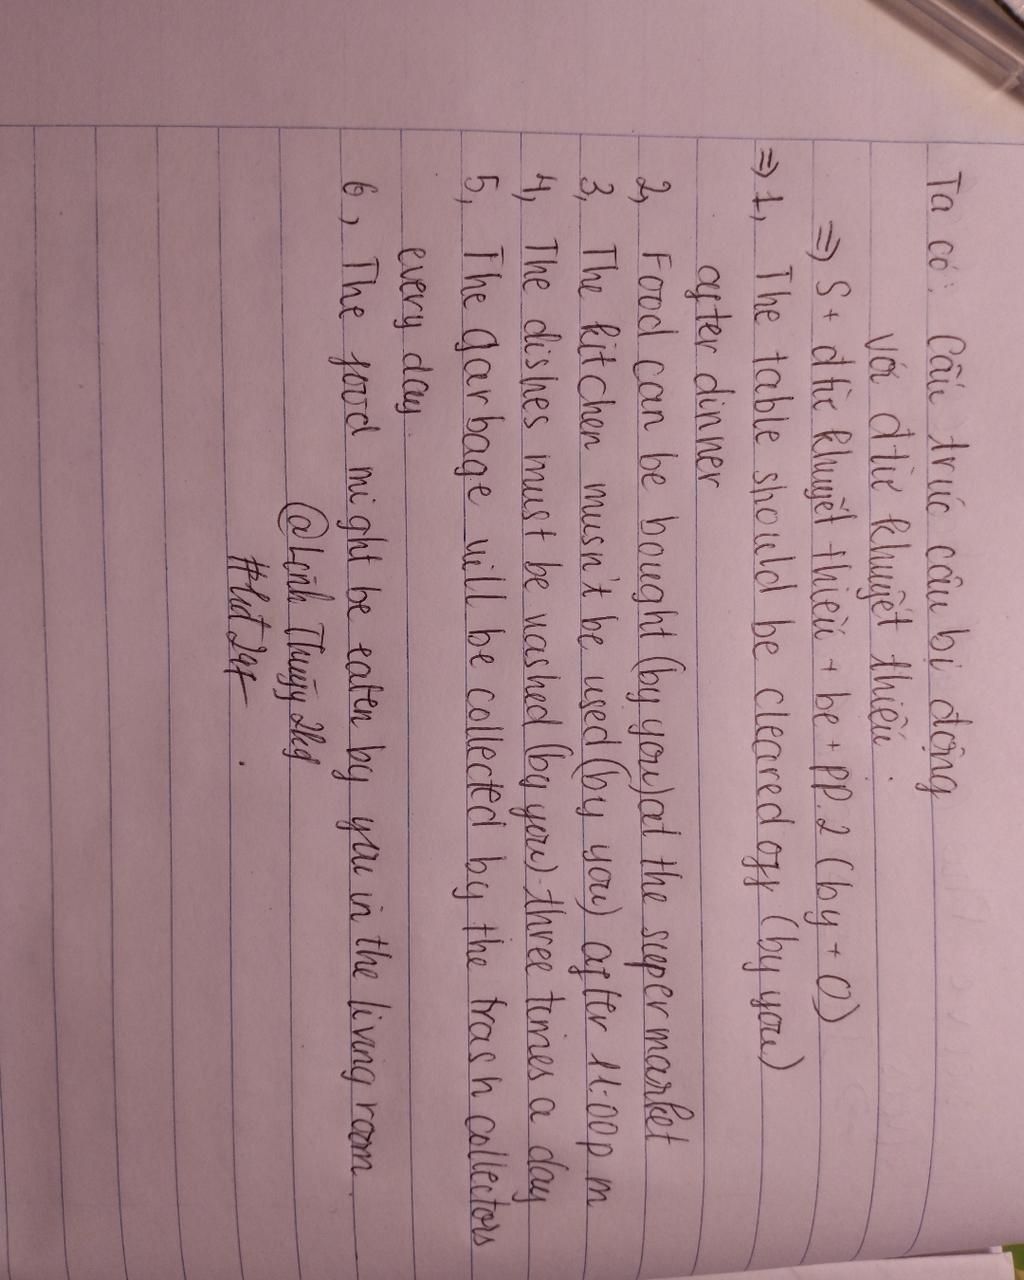 Ta có: Cấu trúc câu bị động
với đtừ khuyết thiếu.
=> S + đtừ khuyết thiếu + be + PP.2 (by + O)
=> 1, The table should be cleared off (by you)
after dinner
2, Food can be bought (by you) at the supermarket
3, The kitchen musn't be used (by you) after 11:00 p m
4, The dishes must be washed (by you) three times a day
5, The garbage will be collected by the trash collectors
every day.
6, The food might be eaten by you in the living room.
@Linh Thuỳy 2kg